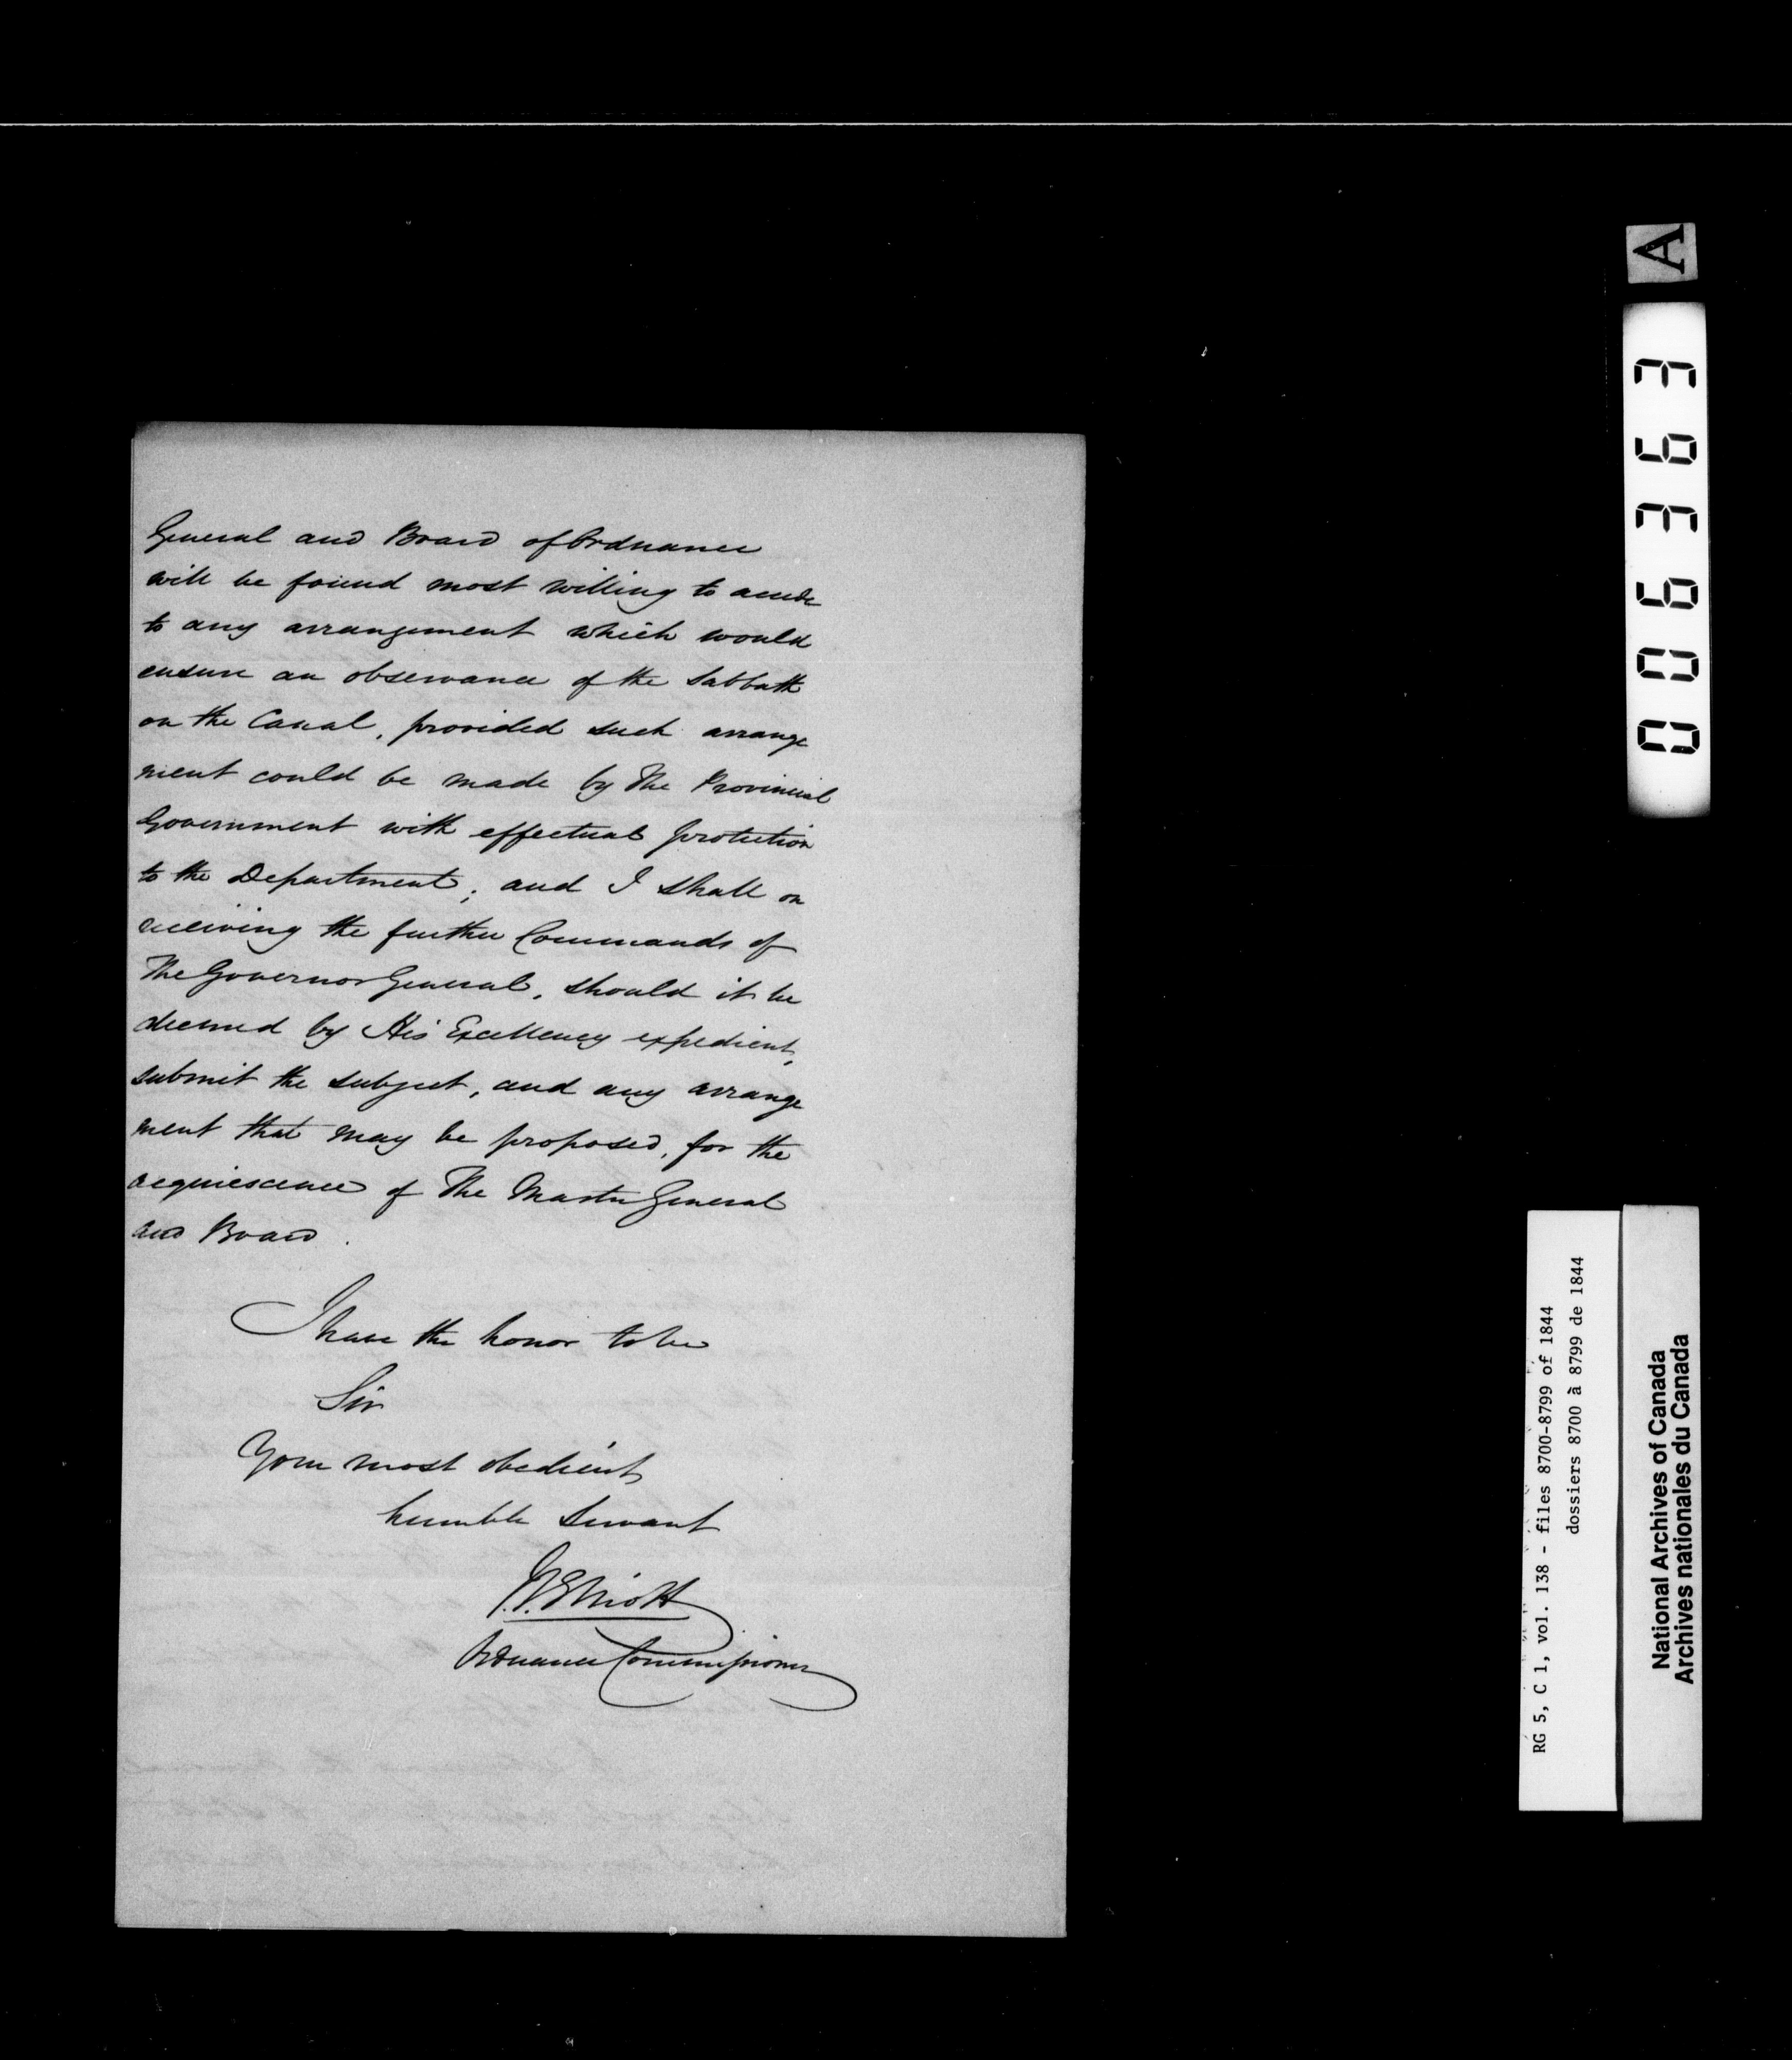 General and Board of Ordnance
will be found most willing to accede
to any arrangement which would
ensure an observance of the Sabbath
on the Canal, provided such arrange
ment could be made by The Provincial
Government with effectual protection
to the Department; and I shall on
receiving the further Commands of
The Governor General, should it be
deemed by His Excellency expedient,
submit the subject, and any arrange
ment that may be proposed, for the
acquiescence of The Master General
and Board.
I have the honor to be
Sir
Your most obedient
humble Servant
Elliott
Ordnance Commissioner
A
006363
RG 5, C 1, vol. 138 - files 8700-8799 of 1844
dossiers 8700 à 8799 de 1844
National Archives of Canada
Archives nationales du Canada